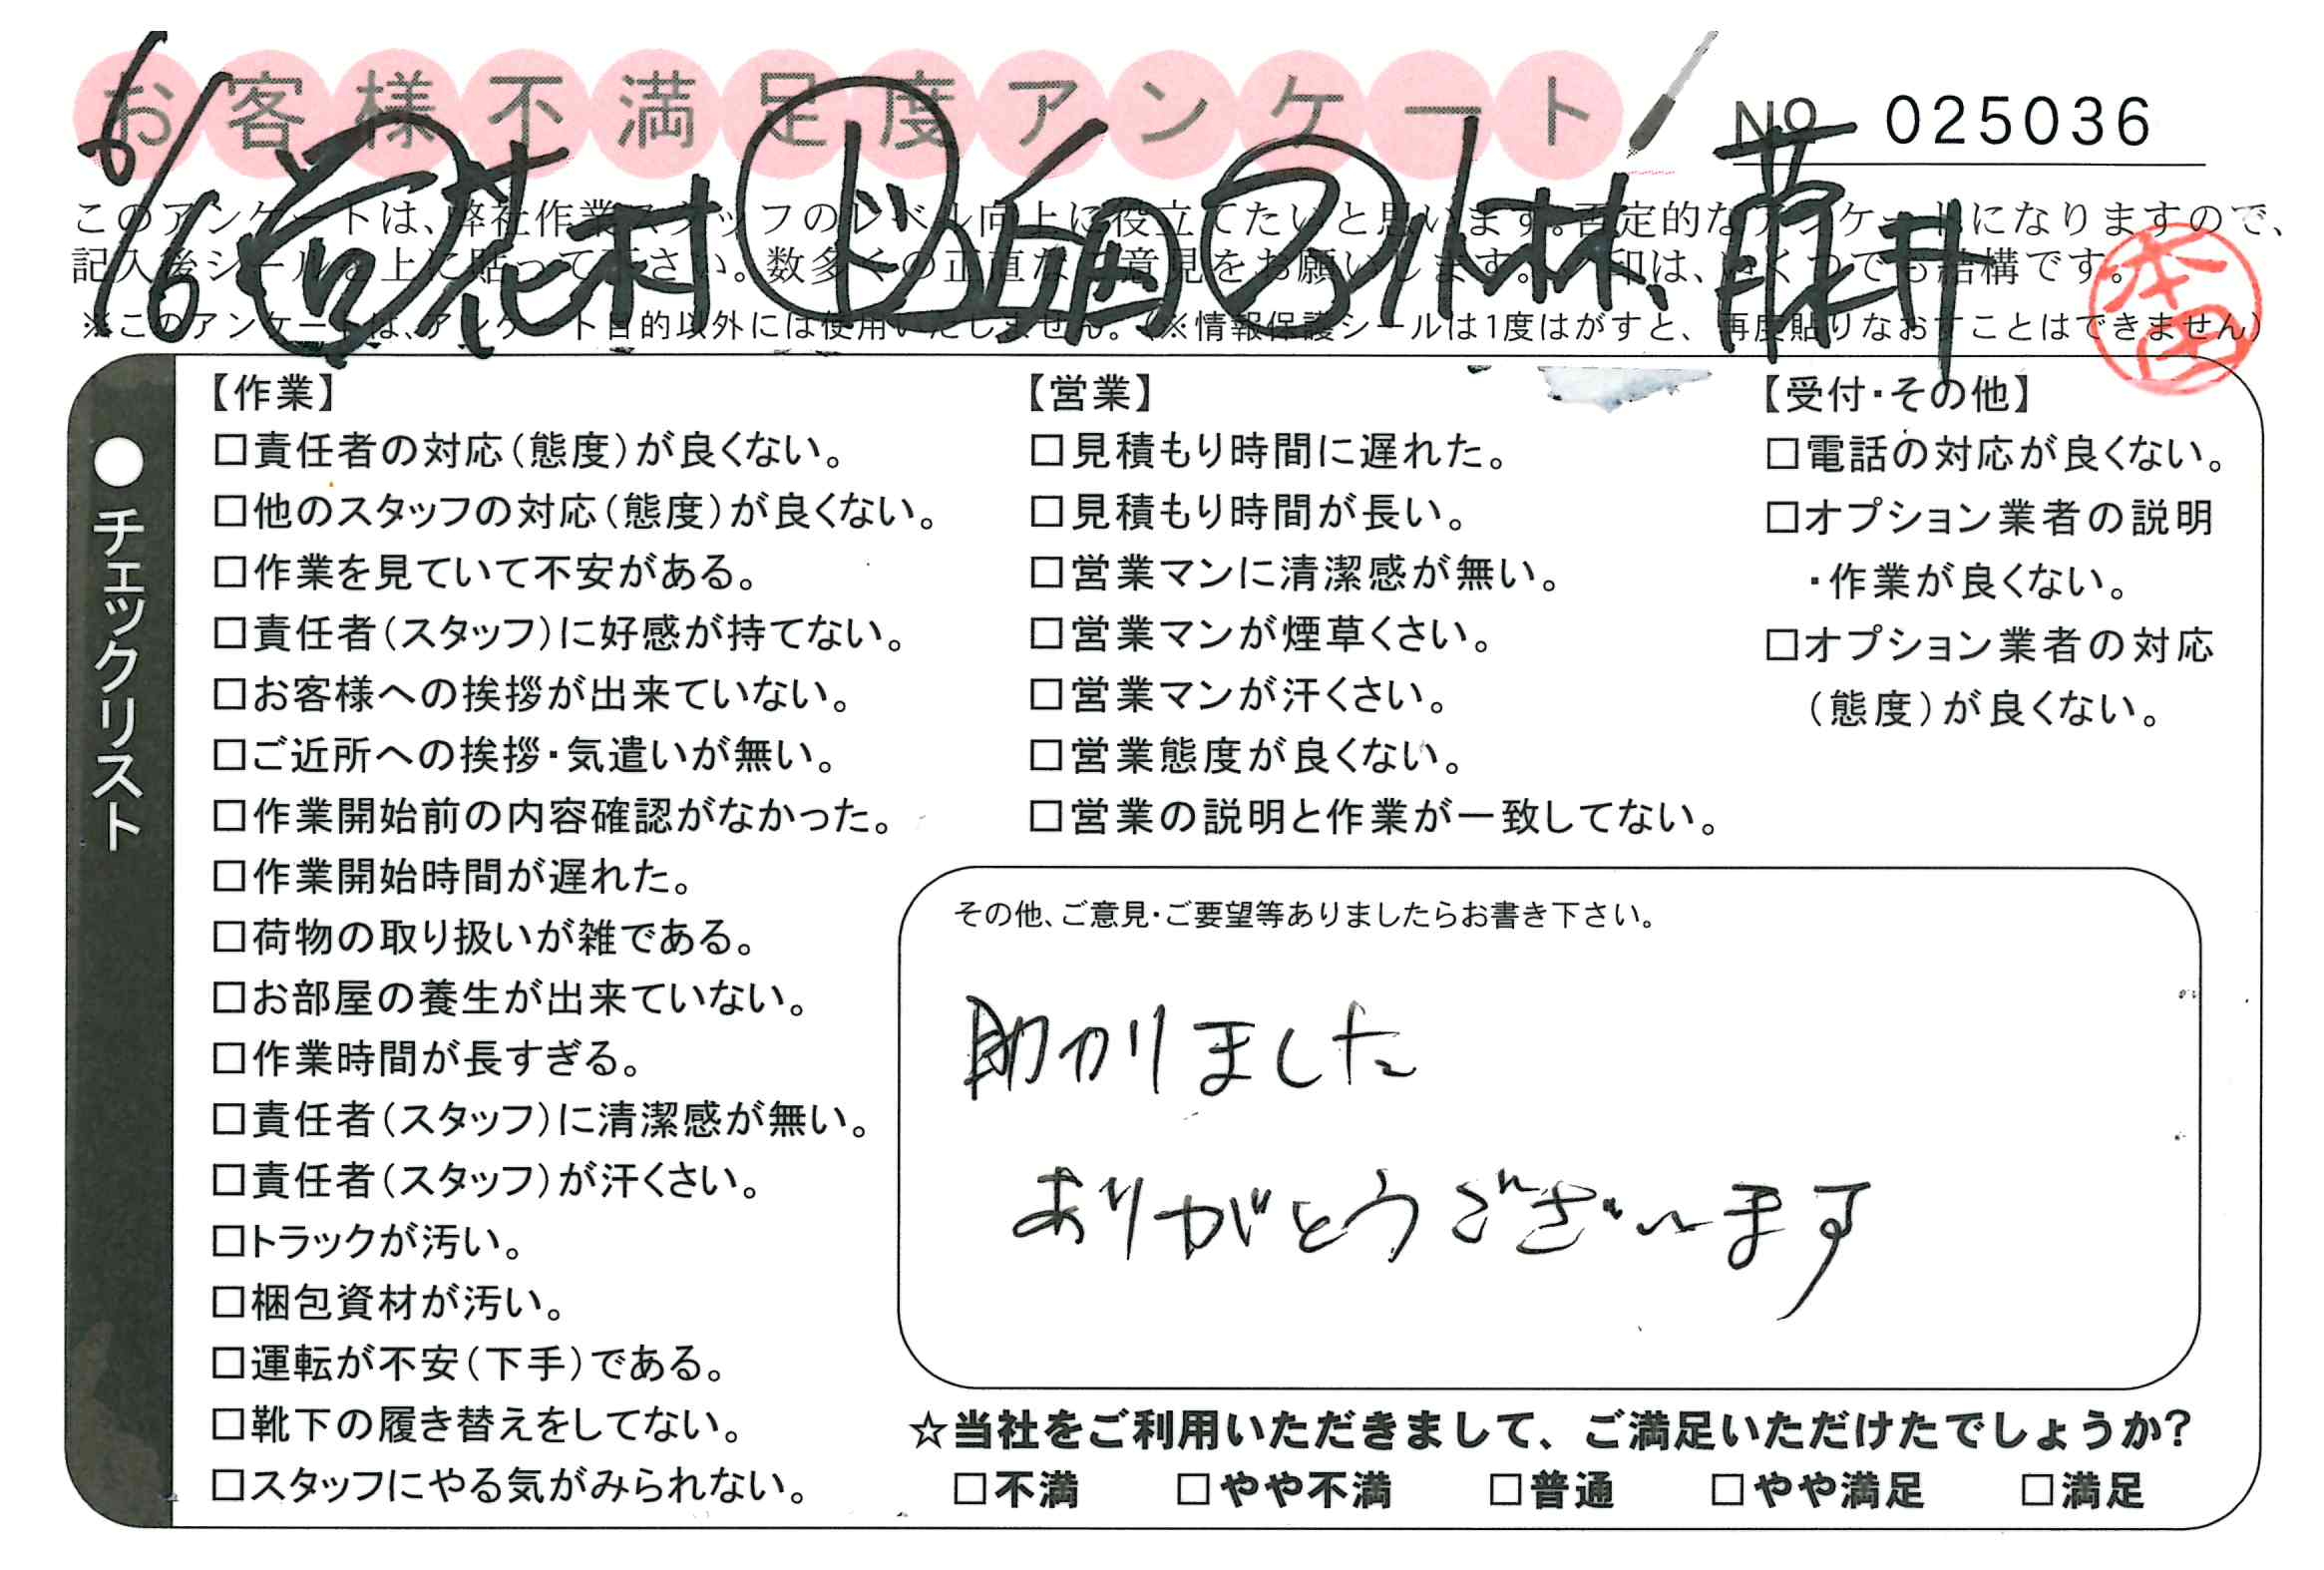 お客様不満足度アンケート
NO 025036
6/6 営 花村 ド 上畑 フ 小林、藤井
このアンケートは、弊社作業スタッフのレベル向上に役立てたいと思います。否定的なアンケートになりますので、
記入後シールを上に貼って下さい。数多くの正直な御意見をお願いします。 印は、いくつでも結構です。
※このアンケートは、アンケート目的以外には使用いたしません。(※情報保護シールは1度はがすと、再度貼りなおすことはできません)
本田
●チェックリスト
【作業】
□責任者の対応(態度)が良くない。
□他のスタッフの対応(態度)が良くない。
□作業を見ていて不安がある。
□責任者(スタッフ)に好感が持てない。
□お客様への挨拶が出来ていない。
□ご近所への挨拶・気遣いが無い。
□作業開始前の内容確認がなかった。
□作業開始時間が遅れた。
□荷物の取り扱いが雑である。
□お部屋の養生が出来ていない。
□作業時間が長すぎる。
□責任者(スタッフ)に清潔感が無い。
□責任者(スタッフ)が汗くさい。
□トラックが汚い。
□梱包資材が汚い。
□運転が不安(下手)である。
□靴下の履き替えをしてない。
□スタッフにやる気がみられない。
【営業】
□見積もり時間に遅れた。
□見積もり時間が長い。
□営業マンに清潔感が無い。
□営業マンが煙草くさい。
□営業マンが汗くさい。
□営業態度が良くない。
□営業の説明と作業が一致してない。
【受付・その他】
□電話の対応が良くない。
□オプション業者の説明
・作業が良くない。
□オプション業者の対応
(態度)が良くない。
その他、ご意見・ご要望等ありましたらお書き下さい。
助かりました
ありがとうございます
☆当社をご利用いただきまして、ご満足いただけたでしょうか?
□不満 □やや不満 □普通 □やや満足 □満足